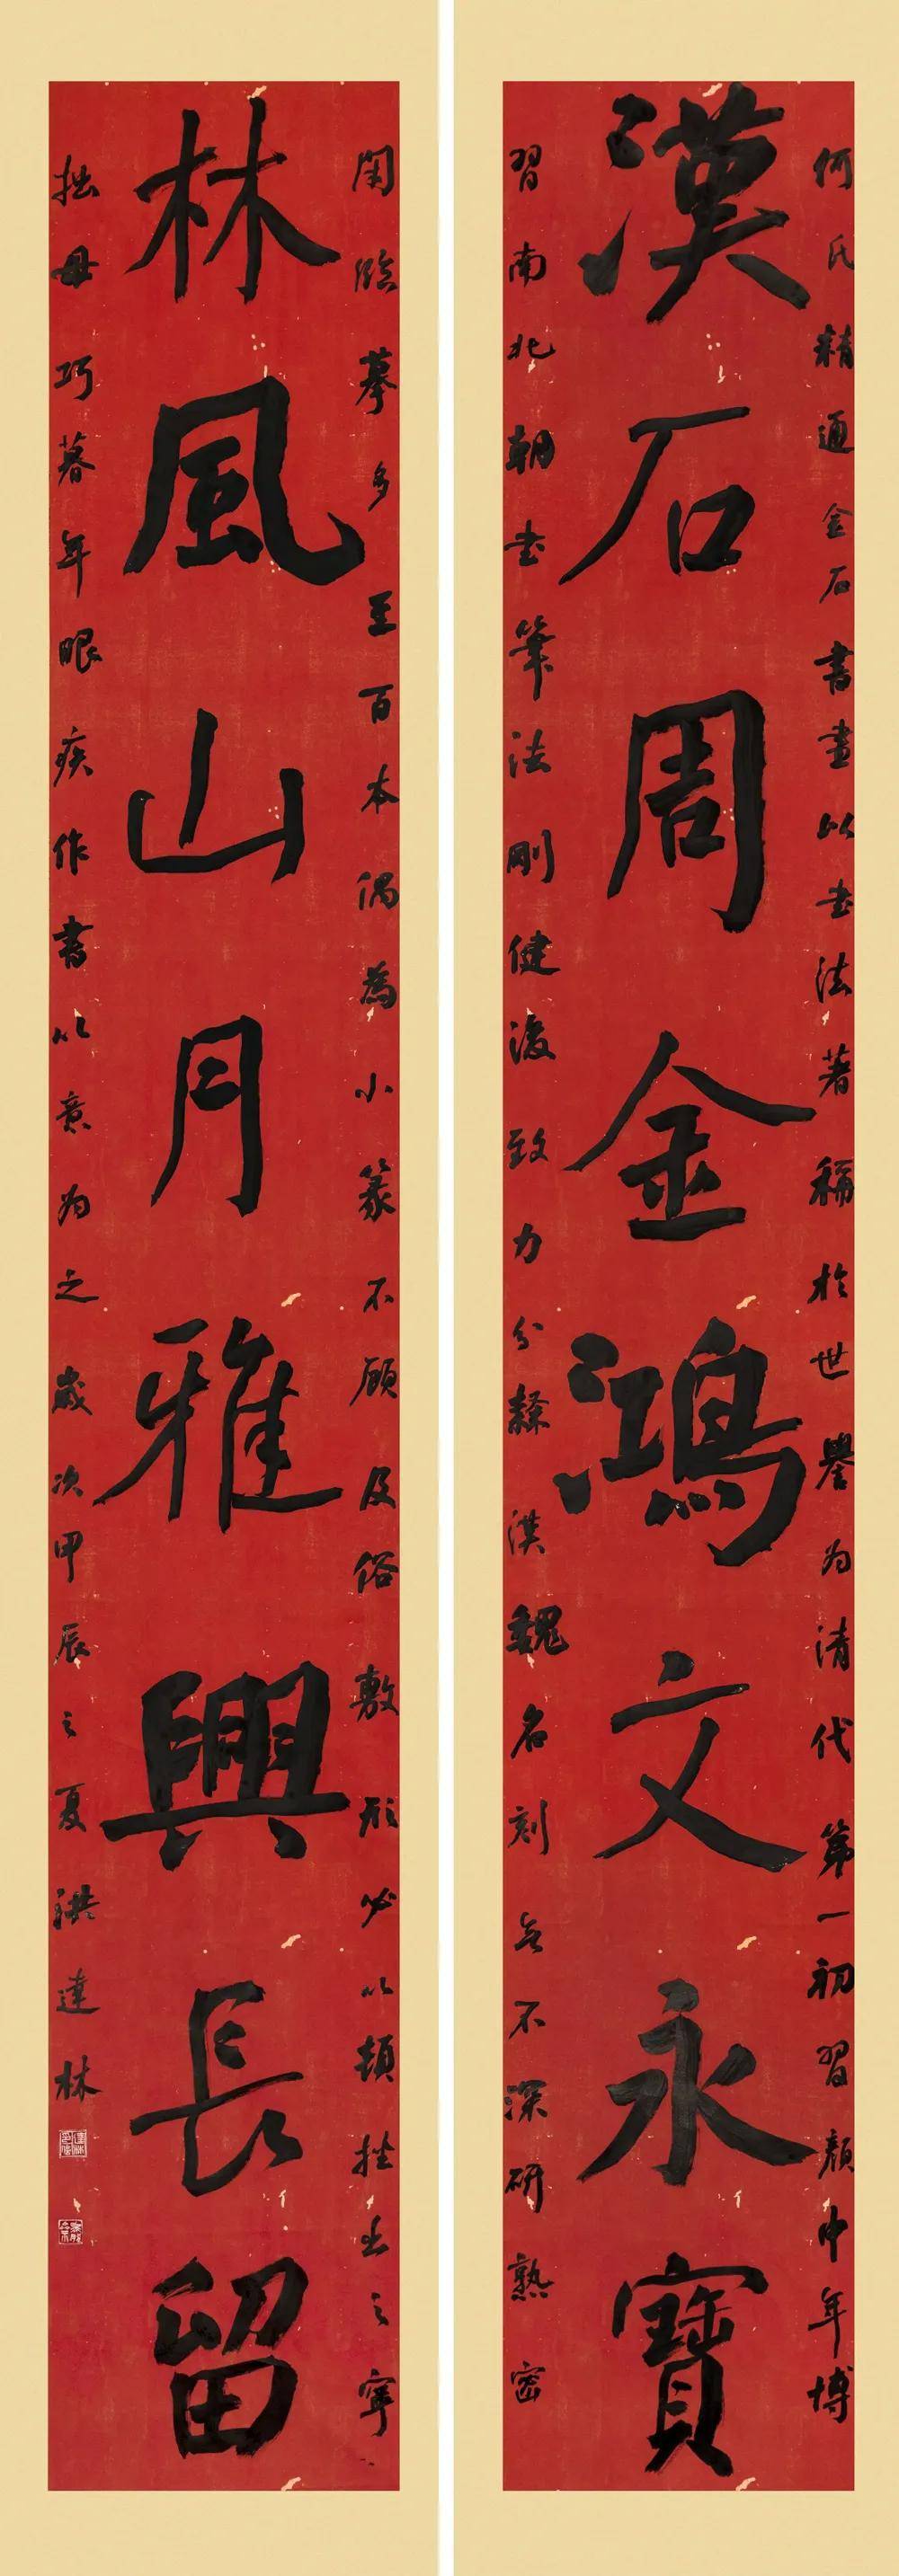 何氏精通金石書畫以书法著稱於世譽为清代第一初習顏中年博
漢石周金鴻文永寶
習南北朝书筆法剛健後致力分隸漢魏名刻无不深研熟密
閑臨摹多至百本偶為小篆不顧及俗敷形必以頓挫出之寧
林風山月雅興長留
拙毋巧暮年眼疾作書以意为之歲次甲辰之夏洪達林